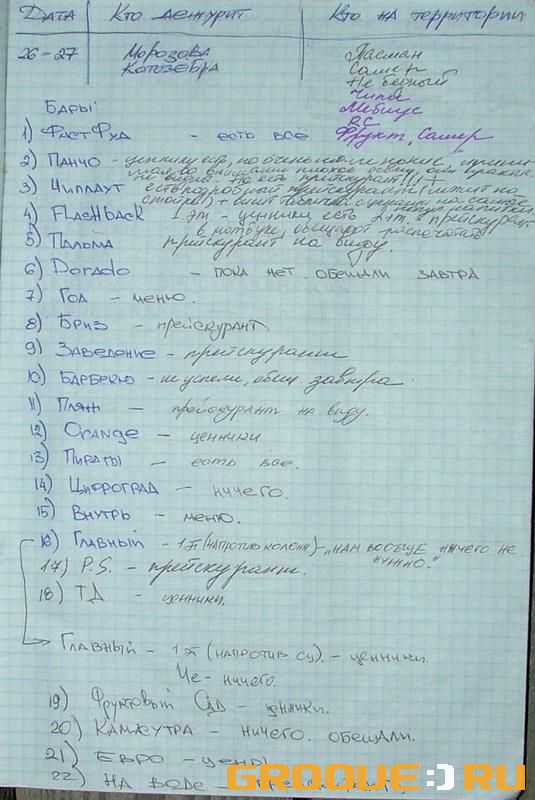 Дата Кто дежурит Кто на территории
26-27 Морозова Пасман
Котозебра Самер
Не бедный
Чипа
Мебиус
RC
Бары: Фрукт, Самер
1) ФастФуд - есть всё
2) Панчо - ценники есть, но очень
3) Чиплаут есть подробный прейскурант (лежит на
стойке) + висит табличка с ценами на самые
4) Flashback 1 эт. - ценники есть 2 эт. прейскурант
в ноутбуке, обещают распечатать
5) Пальма прейскурант на виду.
6) Dorado - пока нет. обещали завтра
7) Год - меню.
8) Бриз - прейскурант.
9) Заведение - прейскурант
10) Барбекю - не успели, обещ. завтра.
11) Пляж - прейскурант на виду.
12) Orange - ценники
13) Пираты - есть все.
14) Цифроград - ничего.
15) Внутрь - меню.
16) Главный - 1 эт (напротив колонн) - „нам вообще ничего не
нужно."
17) P.S. - прейскурант.
18) ТД - ценники.
Главный - 1 эт (напротив сц). - ценники.
Че - ничего.
19) Фруктовый Сад - ценники.
20) Камасутра - ничего. обещали.
21) Евро - цены
22) На воде -
GROOVE:)RU